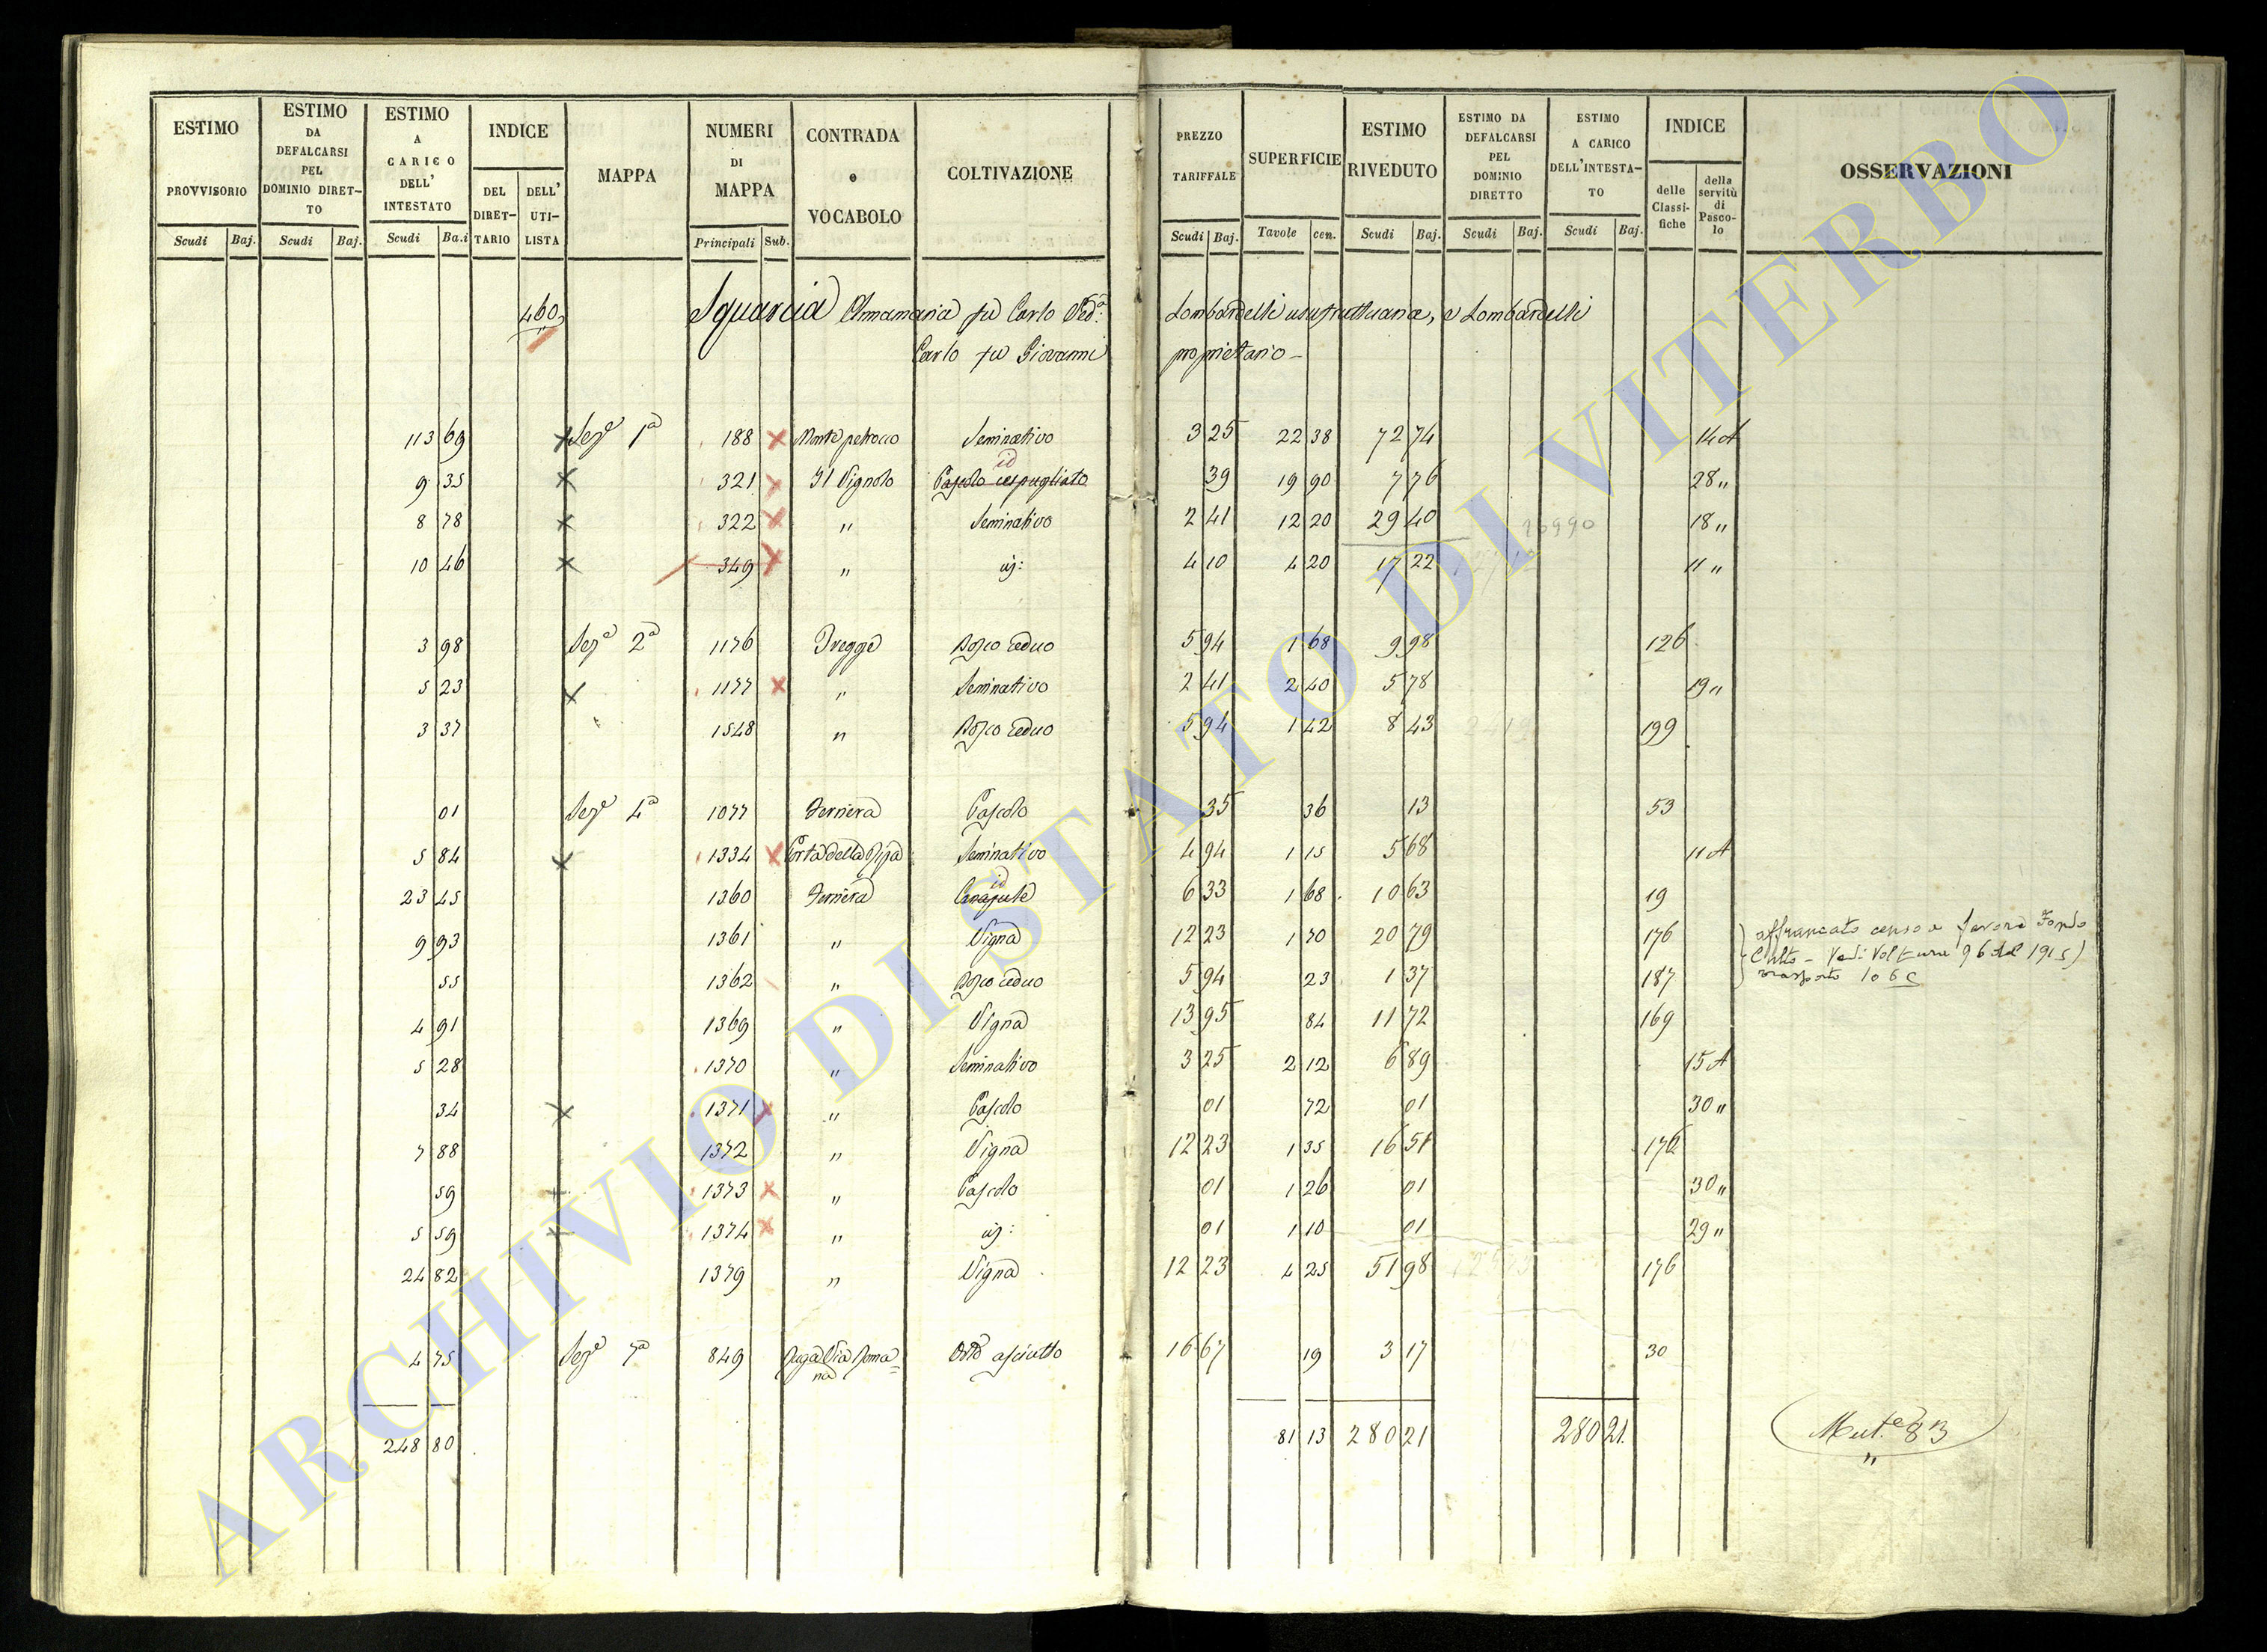 ESTIMO PROVVISORIO
ESTIMO DA DEFALCARSI PEL DOMINIO DIRETTO
ESTIMO A CARICO DELL' INTESTATO
INDICE
DEL DIRETTARIO
DELL' UTILISTA
MAPPA
NUMERI DI MAPPA
CONTRADA e VOCABOLO
COLTIVAZIONE
PREZZO TARIFFALE
SUPERFICIE
ESTIMO RIVEDUTO
ESTIMO DA DEFALCARSI PEL DOMINIO DIRETTO
ESTIMO A CARICO DELL'INTESTATO
INDICE
delle Classifiche
della servitù di Pascolo
OSSERVAZIONI
Scudi Baj. Scudi Baj. Scudi Ba.i Principali Sub. Scudi Baj. Tavole cen. Scudi Baj. Scudi Baj. Scudi Baj.
460 Sguarcia Annamaria fu Carlo Ved.a Lombardelli usufruttuaria, e Lombardelli
Carlo fu Giovanni proprietario
113 69 Sez.e 1a 188 Monte petrocco Seminativo 3 25 22 38 72 74 14 A
id
9 35 321 Il Vignolo Pascolo cespugliato 39 19 90 7 76 28 "
8 78 322 " Seminativo 2 41 12 20 29 40 18 "
10 46 349 " id: 4 10 4 20 17 22 11 "
3 98 Sez.e 2a 1176 Tregge Bosco ceduo 5 94 1 68 9 98 126
5 23 1177 " Seminativo 2 41 2 40 5 78 19 "
3 37 1548 " Bosco ceduo 5 94 1 42 8 43 199
01 Sez.e 4a 1077 Ferriera Pascolo 35 36 13 53
5 84 1334 Porta della Seminativo 4 94 1 15 5 68 11 A
id
23 45 1360 Ferriera Canapule 6 33 1 68 10 63 19
9 93 1361 " Vigna 12 23 1 70 20 79 176 affrancato censo a favore Fondo
Culto - Vedi Volture 96 del 1915)
55 1362 " Bosco ceduo 5 94 23 1 37 187 trasporto 106 C
4 91 1369 " Vigna 13 95 84 11 72 169
5 28 1370 " Seminativo 3 25 2 12 6 89 15 A
34 1371 " Pascolo 01 72 01 30 "
7 88 1372 " Vigna 12 23 1 35 16 51 176
59 1373 " Pascolo 01 1 26 01 30 "
5 59 1374 " id: 01 1 10 01 29 "
24 82 1379 " Vigna 12 23 4 25 51 98 176
4 75 Sez.e 7a 849 Via Romana Orto asciutto 16 67 19 3 17 30
248 80 81 13 280 21 280 21. Mut.e 83
"
ARCHIVIO DI STATO DI VITERBO